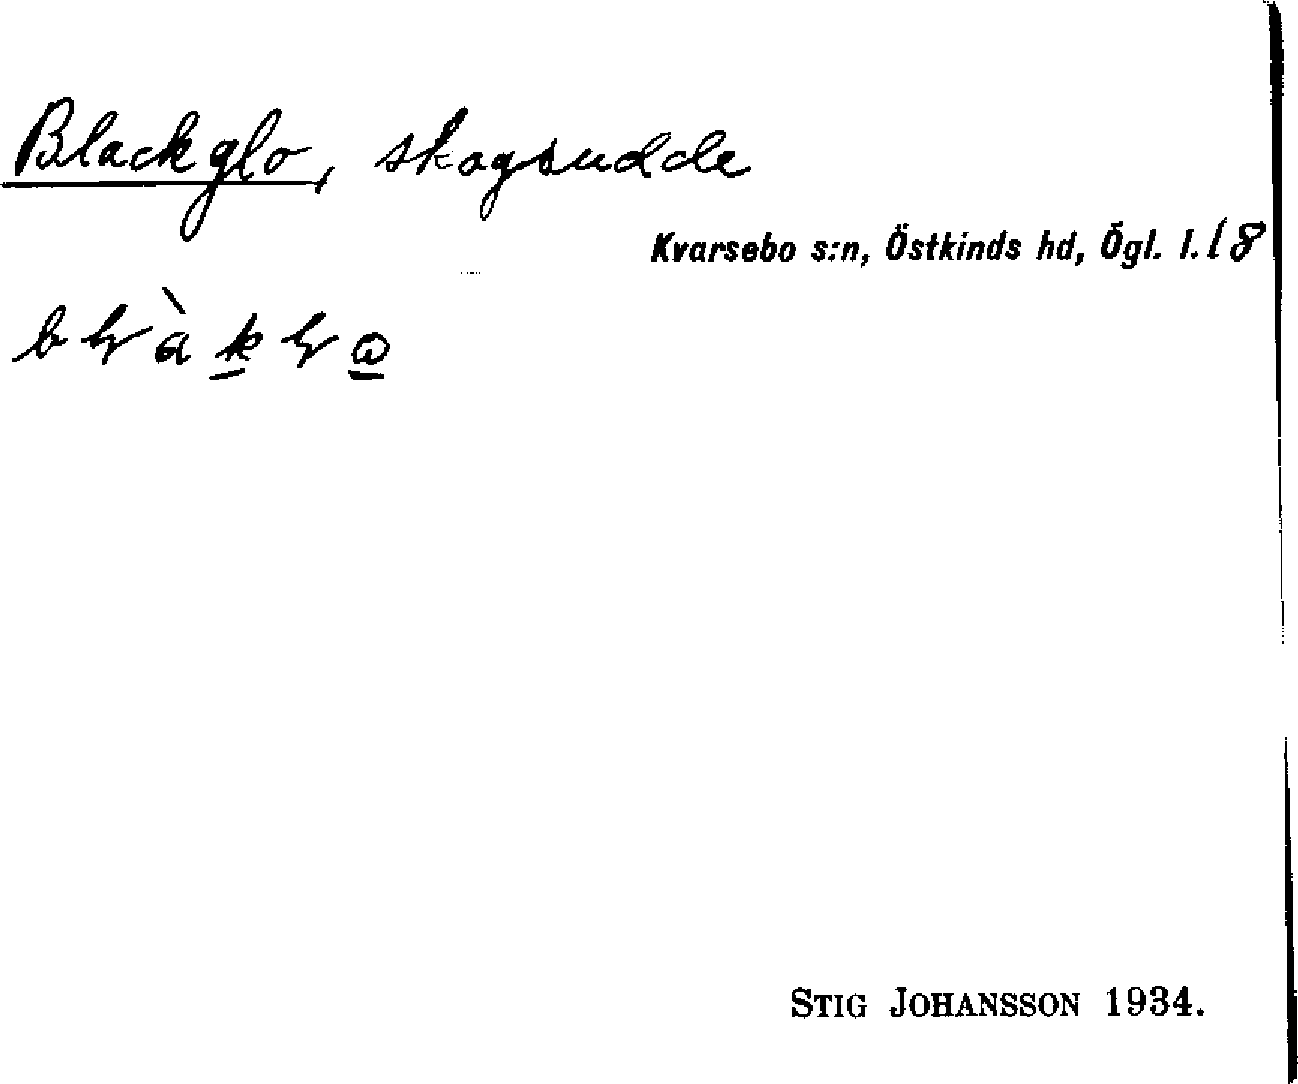 Blackglo, skogsudde
Kvarsebo s:n, Östkinds hd, Ögl. l. 18
STIG JOHANSSON 1934.